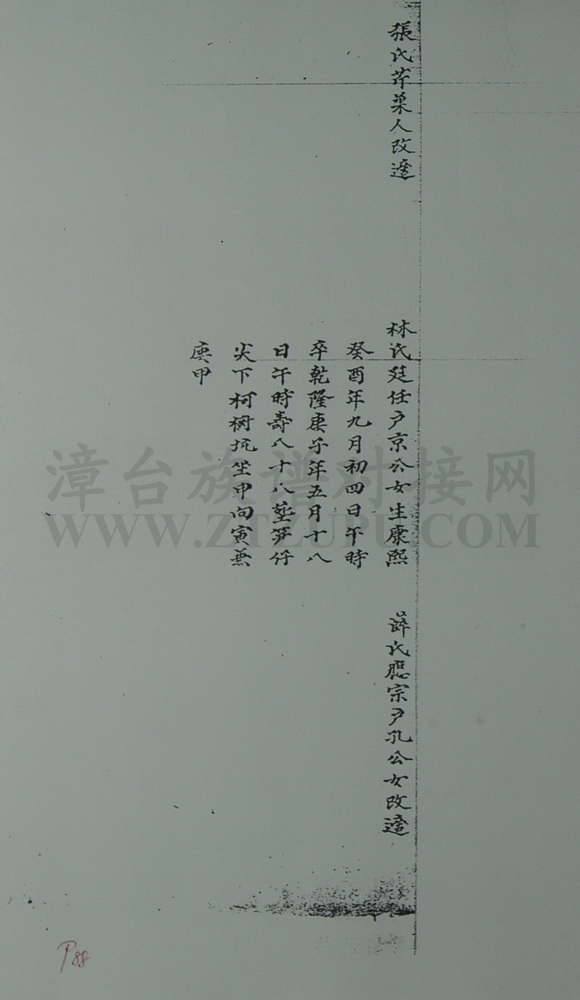 張氏芹菓人改適
林氏廷任户京公女生康熙
癸酉年九月初四日午時
卒乾隆庚子年五月十八
日午時壽八十八塟笋仔
尖下柯樹坑坐申向寅兼
庚甲
薛氏應宗户孔公女改適
漳台族谱对接网
WWW.ZTZUPU.COM
P88